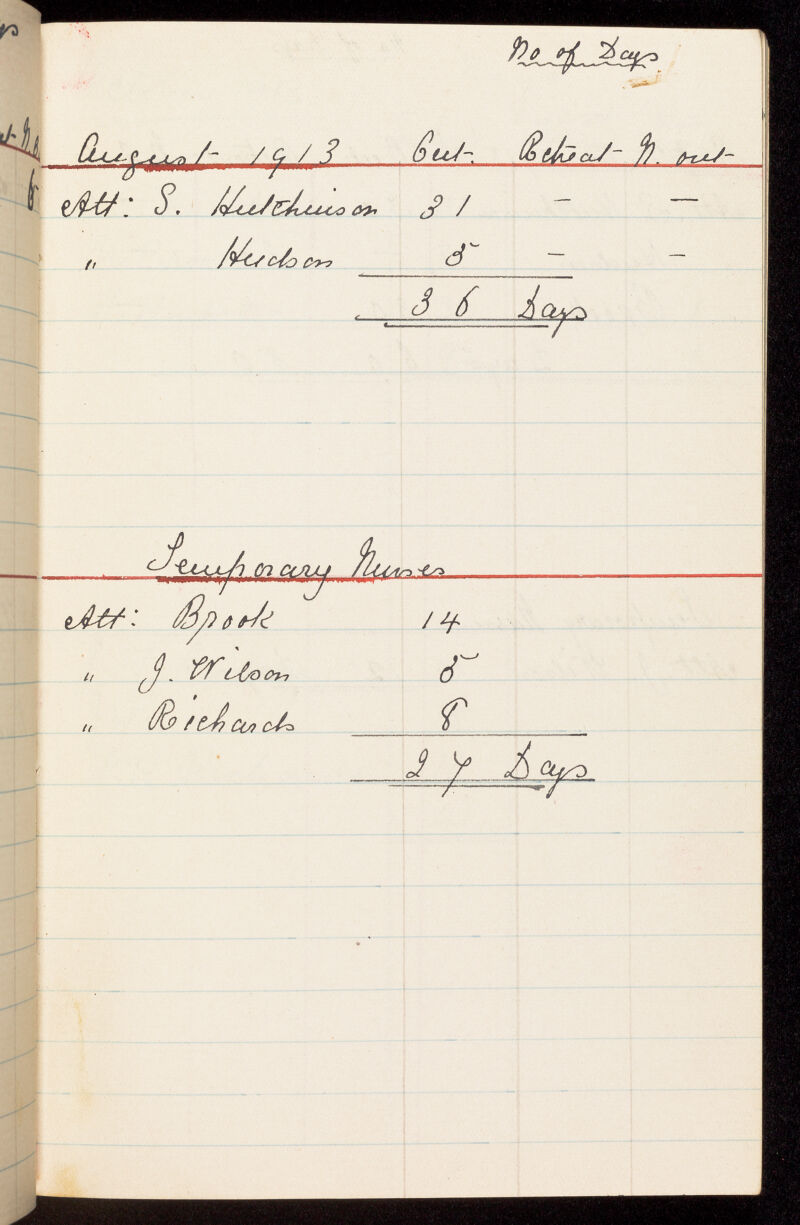 No of Days
August 1913 Out. Retreat N. out
Att: S. Hutchinson 31 — —
" Hudson 5 — —
36 Days
Temporary Nurses
Att: Brook 14
" J. Wilson 5
" Richards 8
27 Days